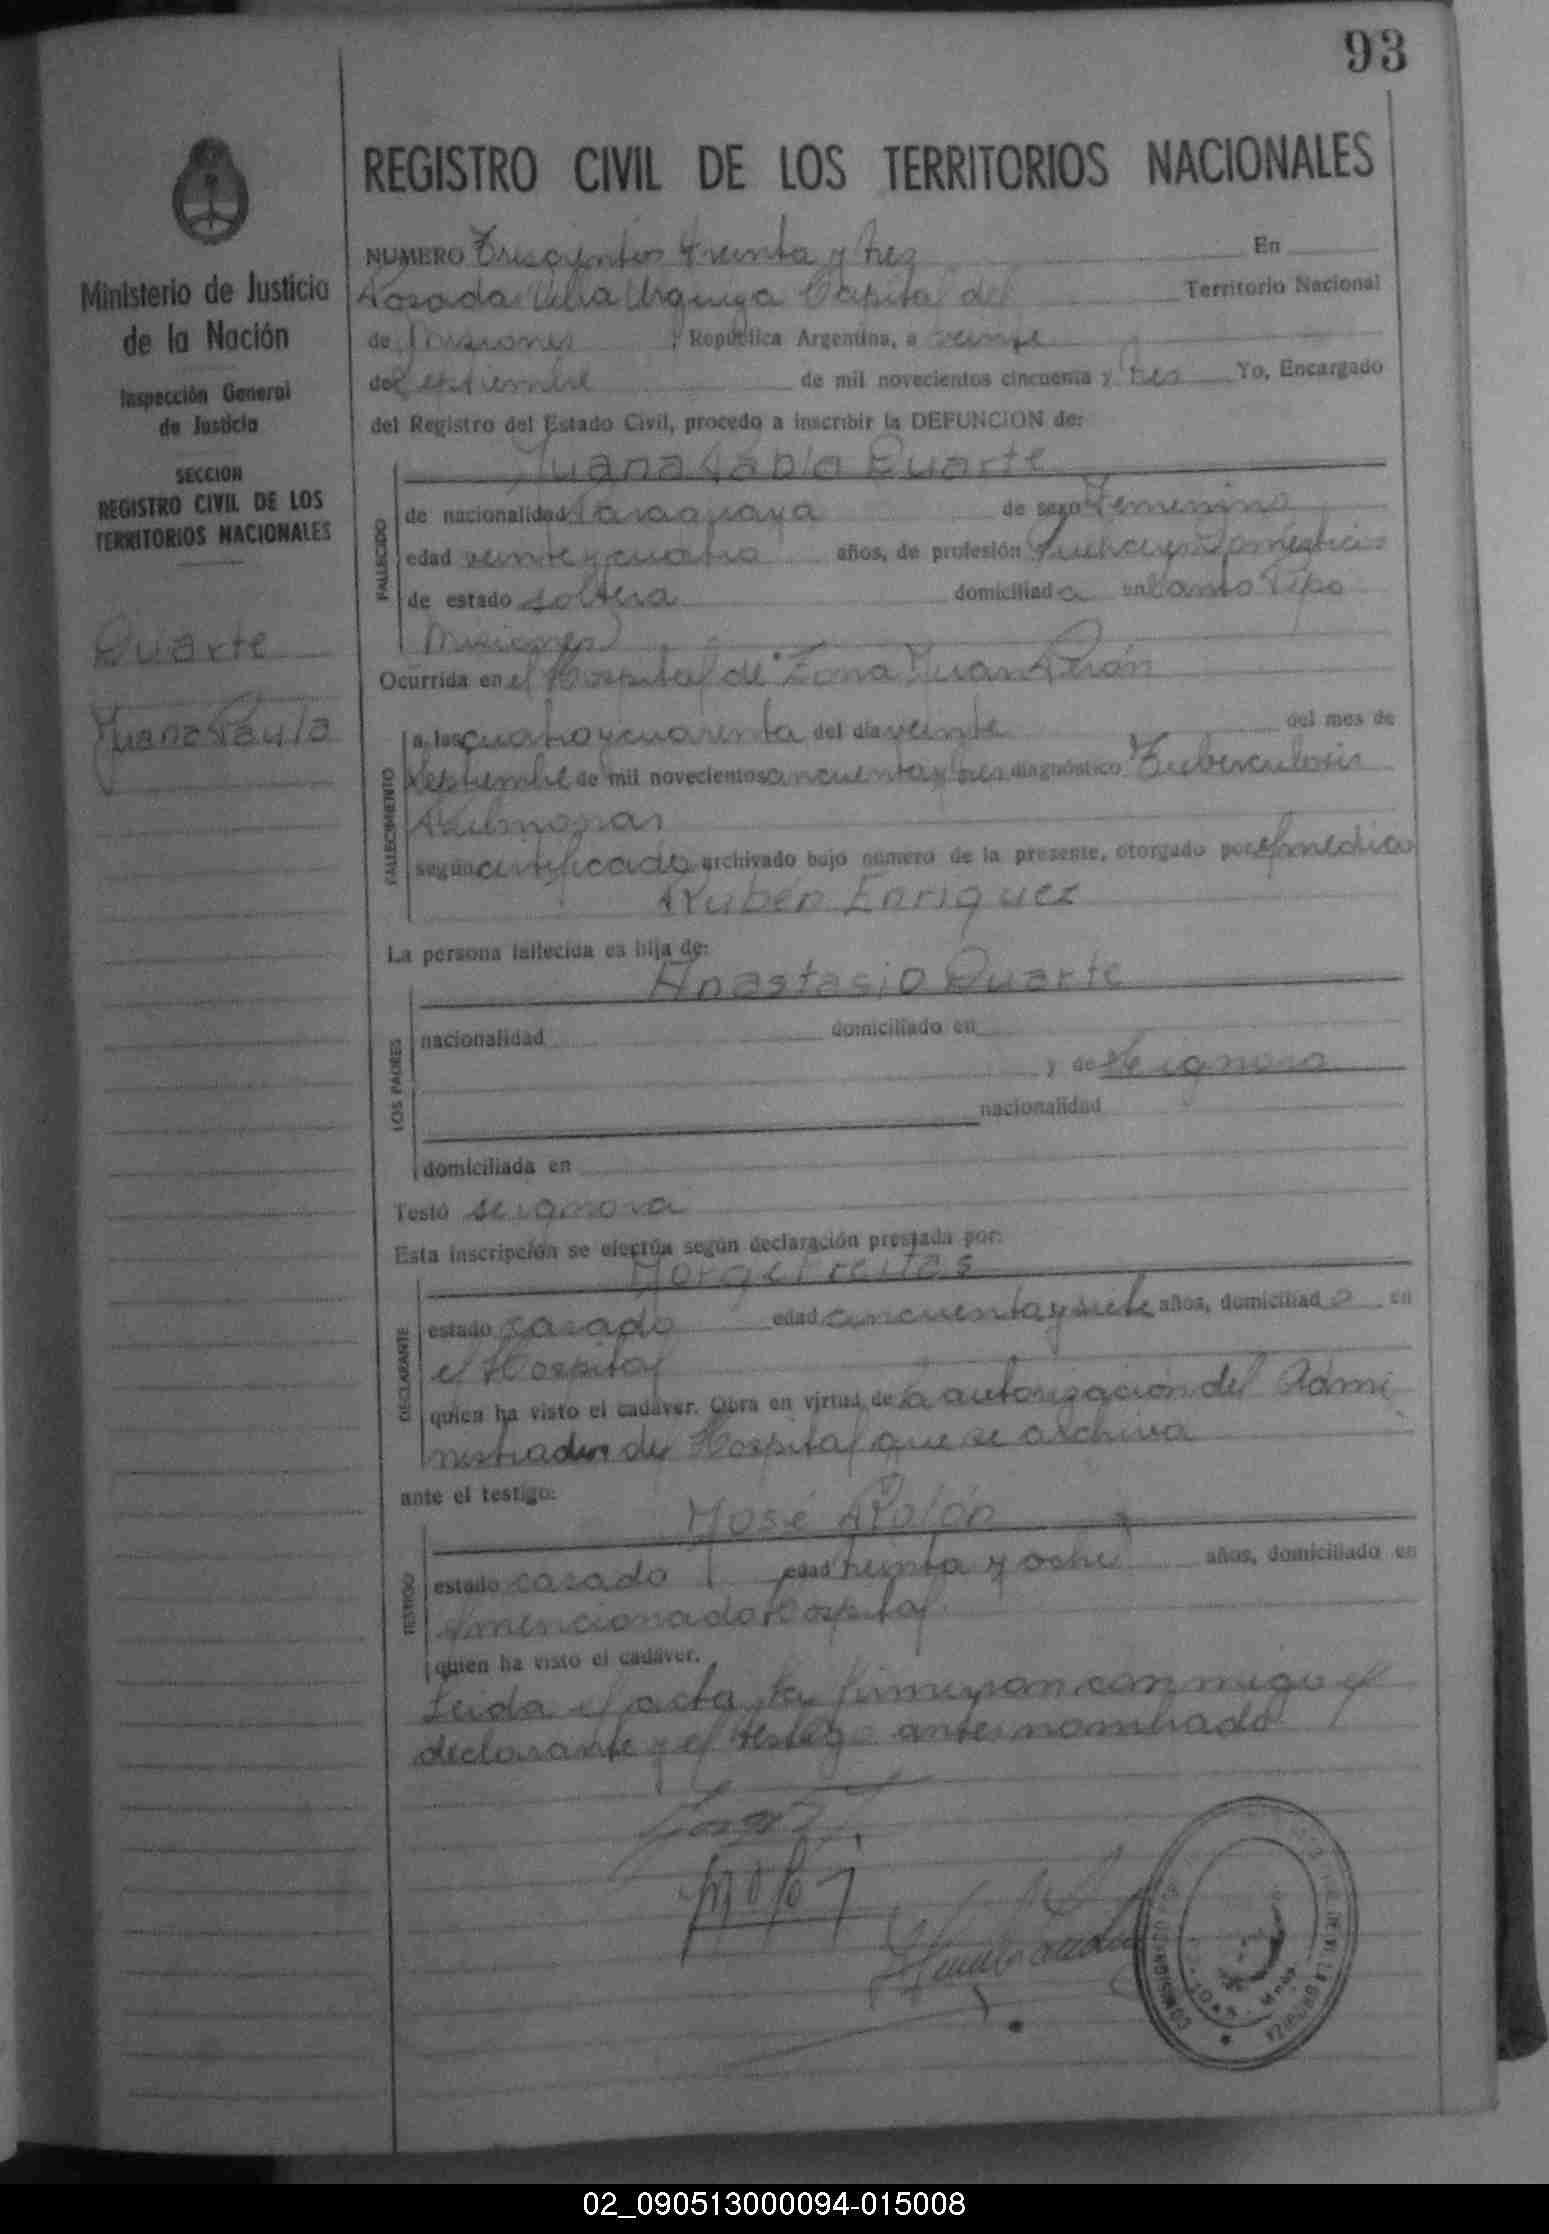 93
REGISTRO CIVIL DE LOS TERRITORIOS NACIONALES
Ministerio de Justicia
de la Nación
Inspección General
de Justicia
SECCION
REGISTRO CIVIL DE LOS
TERRITORIOS NACIONALES
Duarte
Juana Paula
NUMERO Trescientos treinta y tres En
Posadas Villa Urquiza Capital del Territorio Nacional
de Misiones, República Argentina, a veinte
de Septiembre de mil novecientos cincuenta y tres Yo, Encargado
del Registro del Estado Civil, procedo a inscribir la DEFUNCION de:
Juana Duarte
FALLECIDO
de nacionalidad Paraguaya de sexo Femenino
edad veinte y cuatro años, de profesión Quehaceres Domésticos
de estado soltera domiciliada en
Misiones
Ocurrida en el Hospital de Zona Juan Perón
FALLECIMIENTO
a las cuatro y cuarenta del día veinte del mes de
Septiembre de mil novecientos cincuenta y tres diagnóstico Tuberculosis
Pulmonar
según certificado archivado bajo número de la presente, otorgado por el médico
Rubén Enriquez
La persona fallecida es hija de:
LOS PADRES
Anastasio Duarte
nacionalidad domiciliado en
y de Se ignora
nacionalidad
domiciliada en
Testó se ignora
Esta inscripción se efectúa según declaración prestada por:
DECLARANTE
Jorge Freitas
estado casado edad cincuenta y siete años, domiciliado en
el Hospital
quien ha visto el cadáver. Obra en virtud de la autorización del Admi
nistrador del Hospital que se archiva
ante el testigo:
TESTIGO
José Rolón
estado casado edad treinta y ocho años, domiciliado en
el mencionado Hospital
quien ha visto el cadáver.
Leida el acta la firman conmigo el
declarante y el testigo antes nombrado
02_090513000094-015008